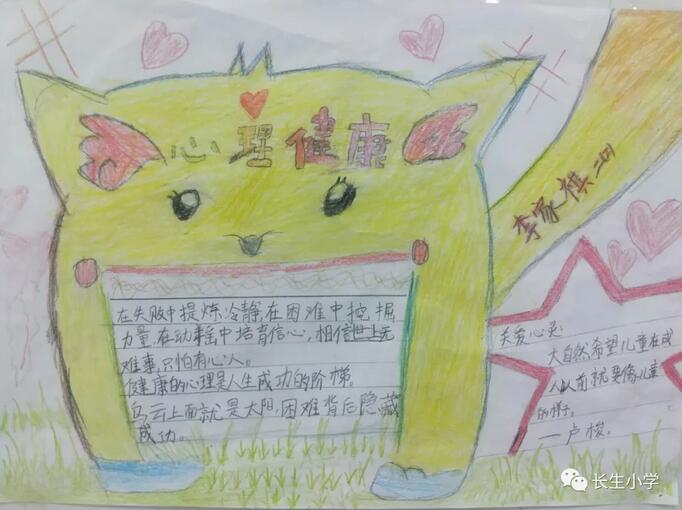 心理健康
李家禛 二(4)
在失败中提炼冷静,在困难中挖掘
力量,在动摇中培育信心,相信世上无
难事,只怕有心人。
健康的心理是人生成功的阶梯。
乌云上面就是太阳,困难背后隐藏
成功。
关爱心灵:
大自然希望儿童在成
人以前就要像儿童
的样子。
——卢梭。
长生小学